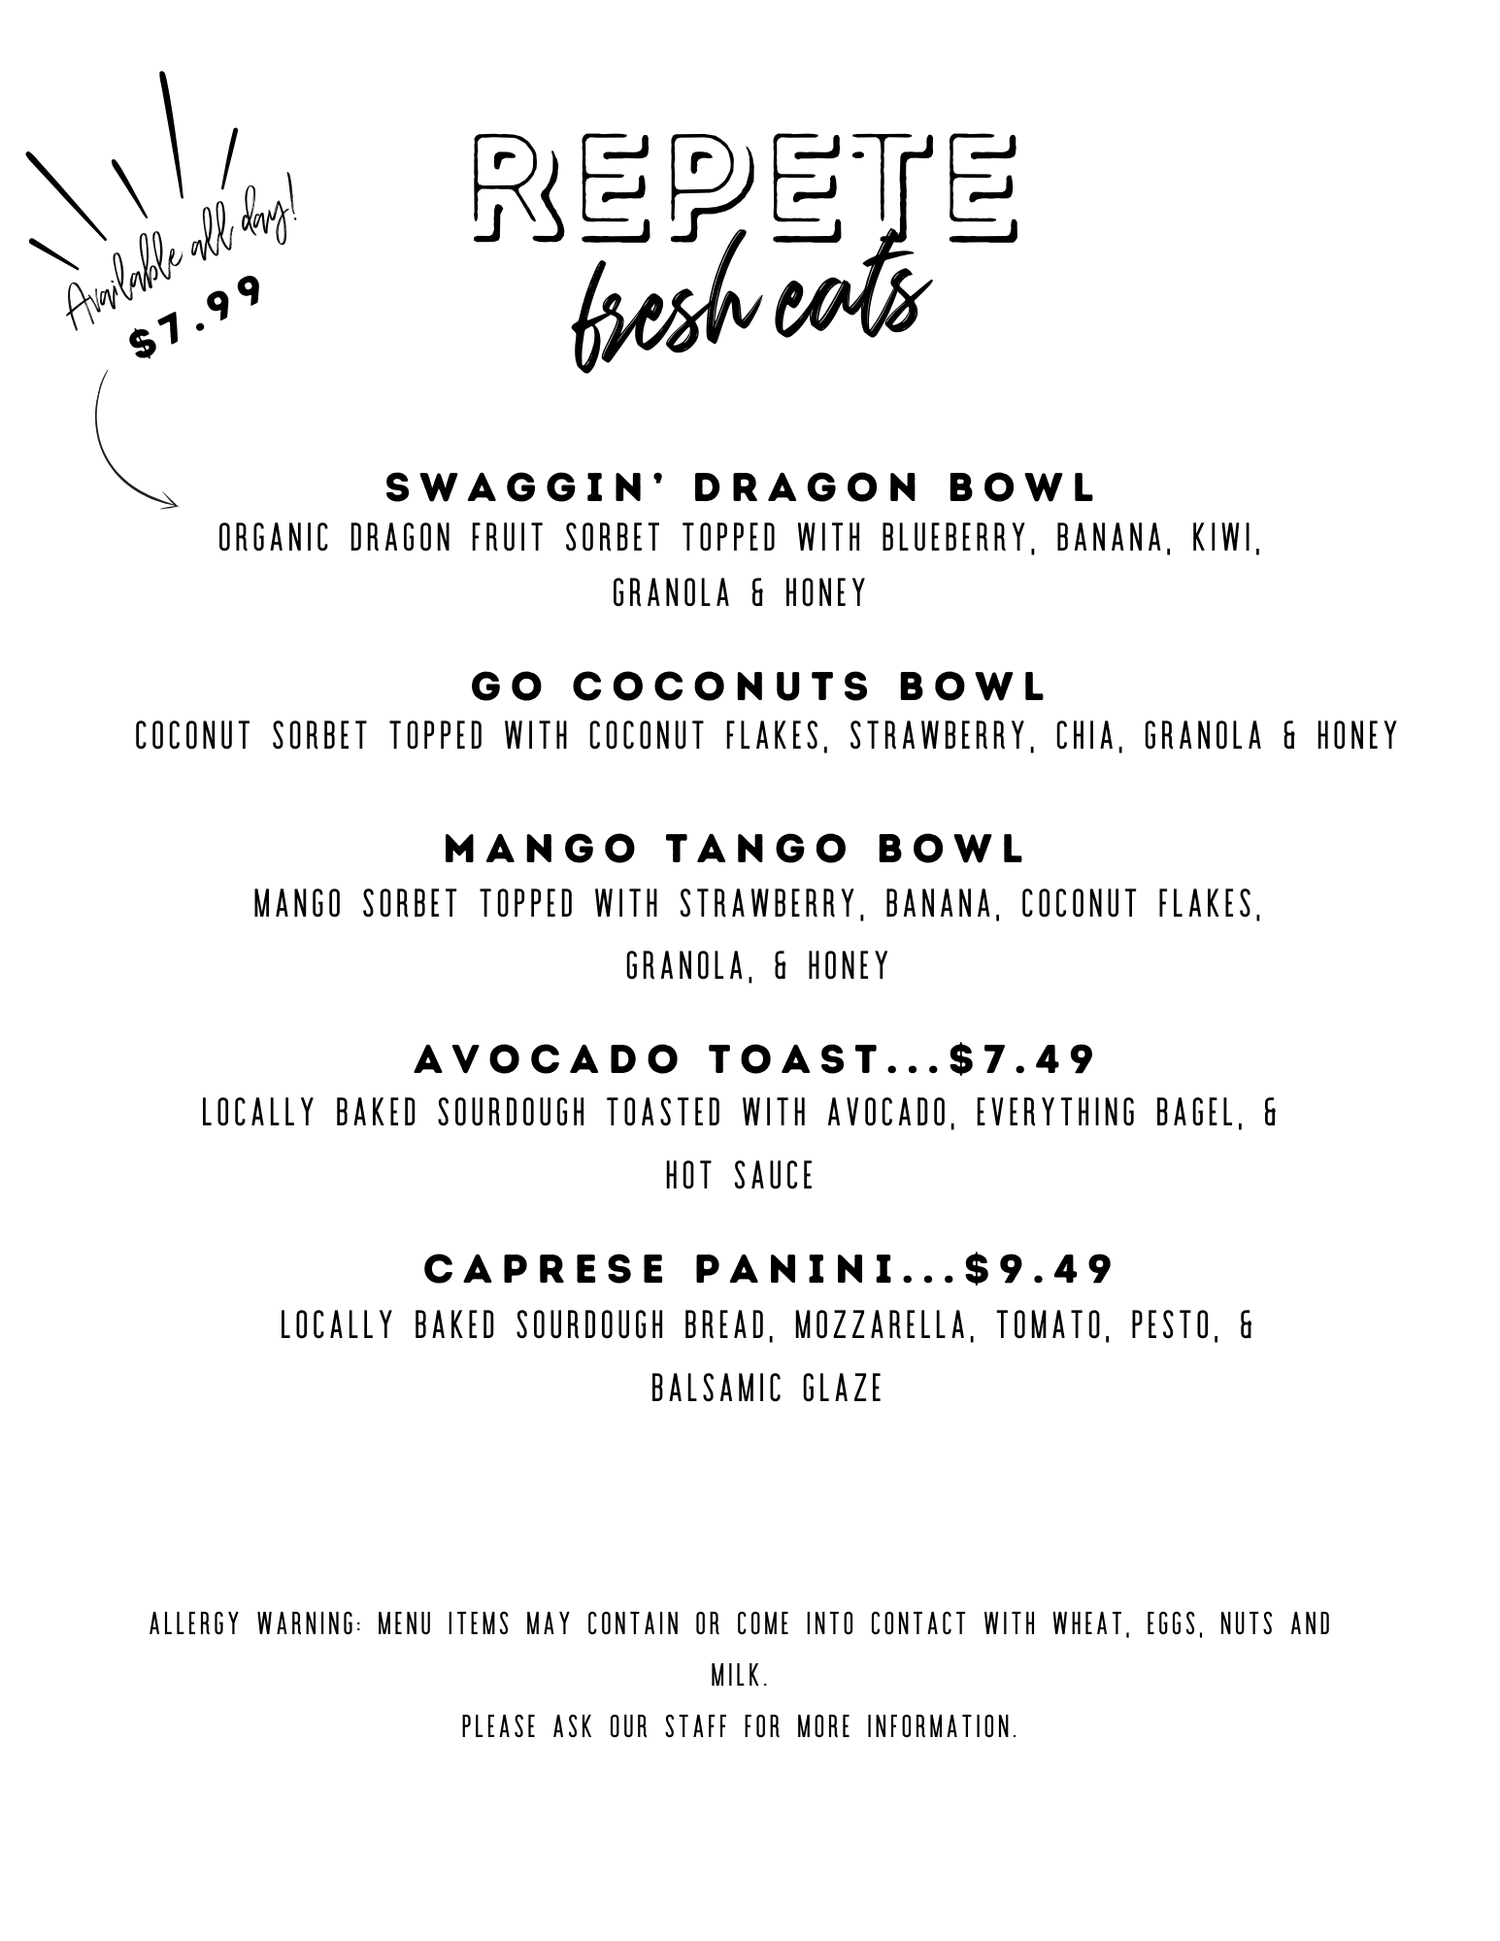 Available all day!
$7.99
REPETE
fresh eats
SWAGGIN' DRAGON BOWL
ORGANIC DRAGON FRUIT SORBET TOPPED WITH BLUEBERRY, BANANA, KIWI,
GRANOLA & HONEY
GO COCONUTS BOWL
COCONUT SORBET TOPPED WITH COCONUT FLAKES, STRAWBERRY, CHIA, GRANOLA & HONEY
MANGO TANGO BOWL
MANGO SORBET TOPPED WITH STRAWBERRY, BANANA, COCONUT FLAKES,
GRANOLA, & HONEY
AVOCADO TOAST...$7.49
LOCALLY BAKED SOURDOUGH TOASTED WITH AVOCADO, EVERYTHING BAGEL, &
HOT SAUCE
CAPRESE PANINI...$9.49
LOCALLY BAKED SOURDOUGH BREAD, MOZZARELLA, TOMATO, PESTO, &
BALSAMIC GLAZE
ALLERGY WARNING: MENU ITEMS MAY CONTAIN OR COME INTO CONTACT WITH WHEAT, EGGS, NUTS AND
MILK.
PLEASE ASK OUR STAFF FOR MORE INFORMATION.